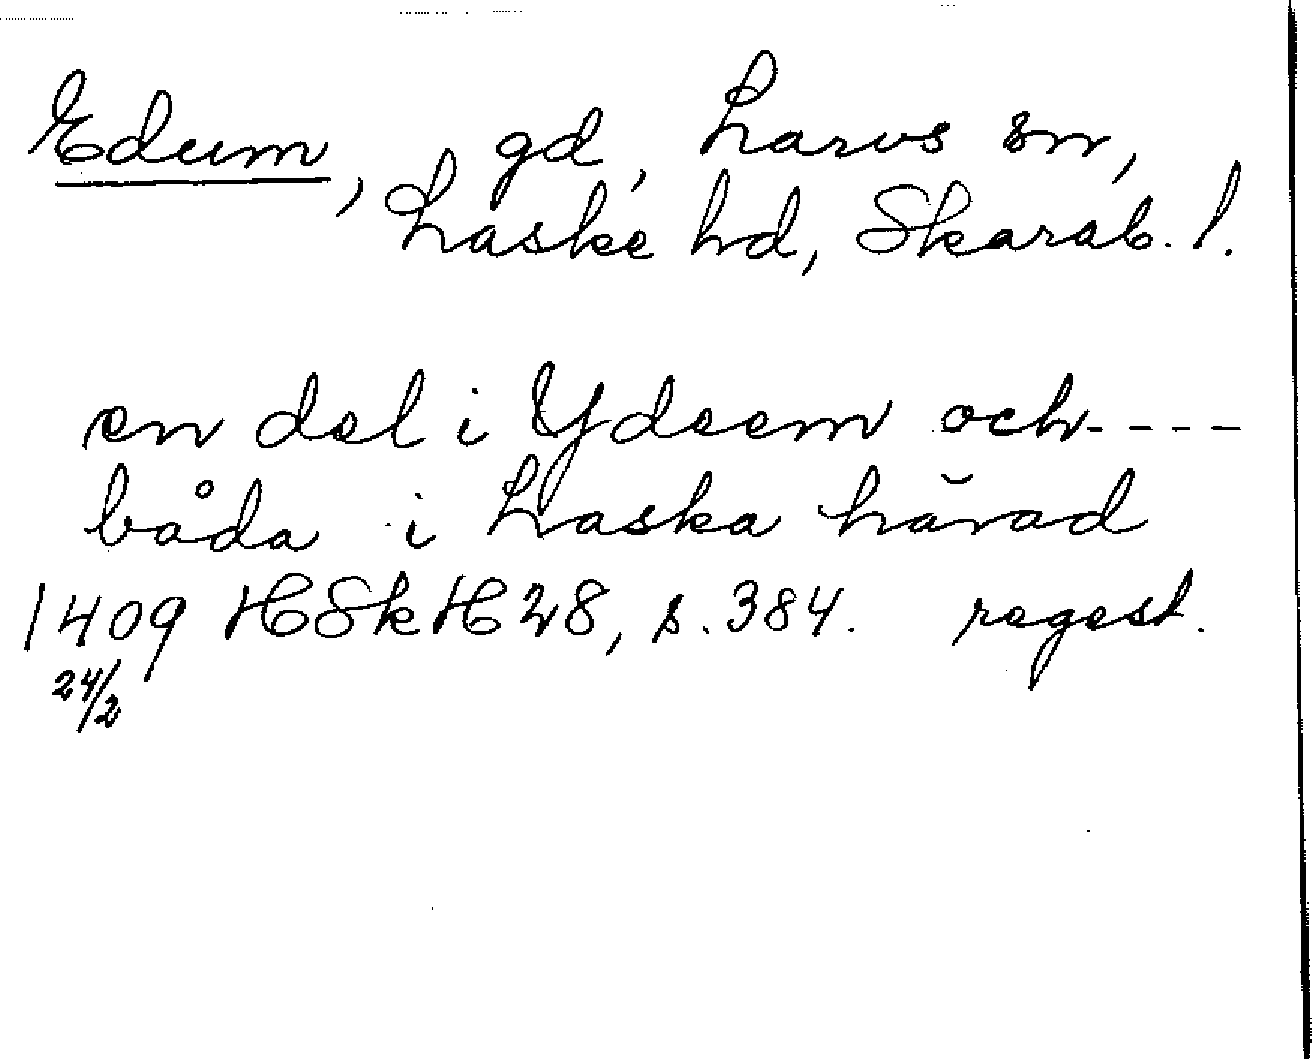 Edum, gd, Larvs sn,
Laske hd, Skarab. l.
en del i Ydeem och----
båda i Laska härad
1409 HSkH 28, s. 384. regest.
24/2